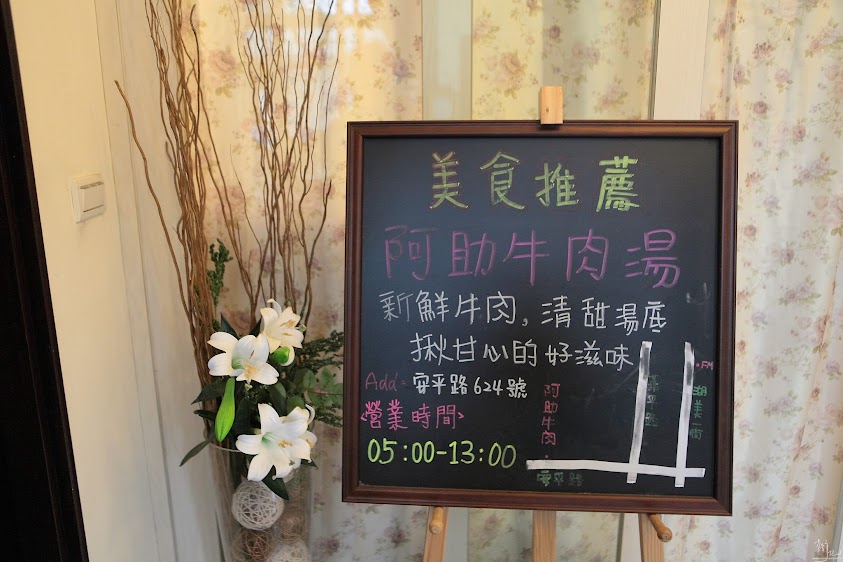 美食推薦
阿助牛肉湯
新鮮牛肉,清甜湯底
揪甘心的好滋味
Add: 安平路624號
<營業時間>
05:00-13:00
阿助牛肉
安平路
湖美一街
FM